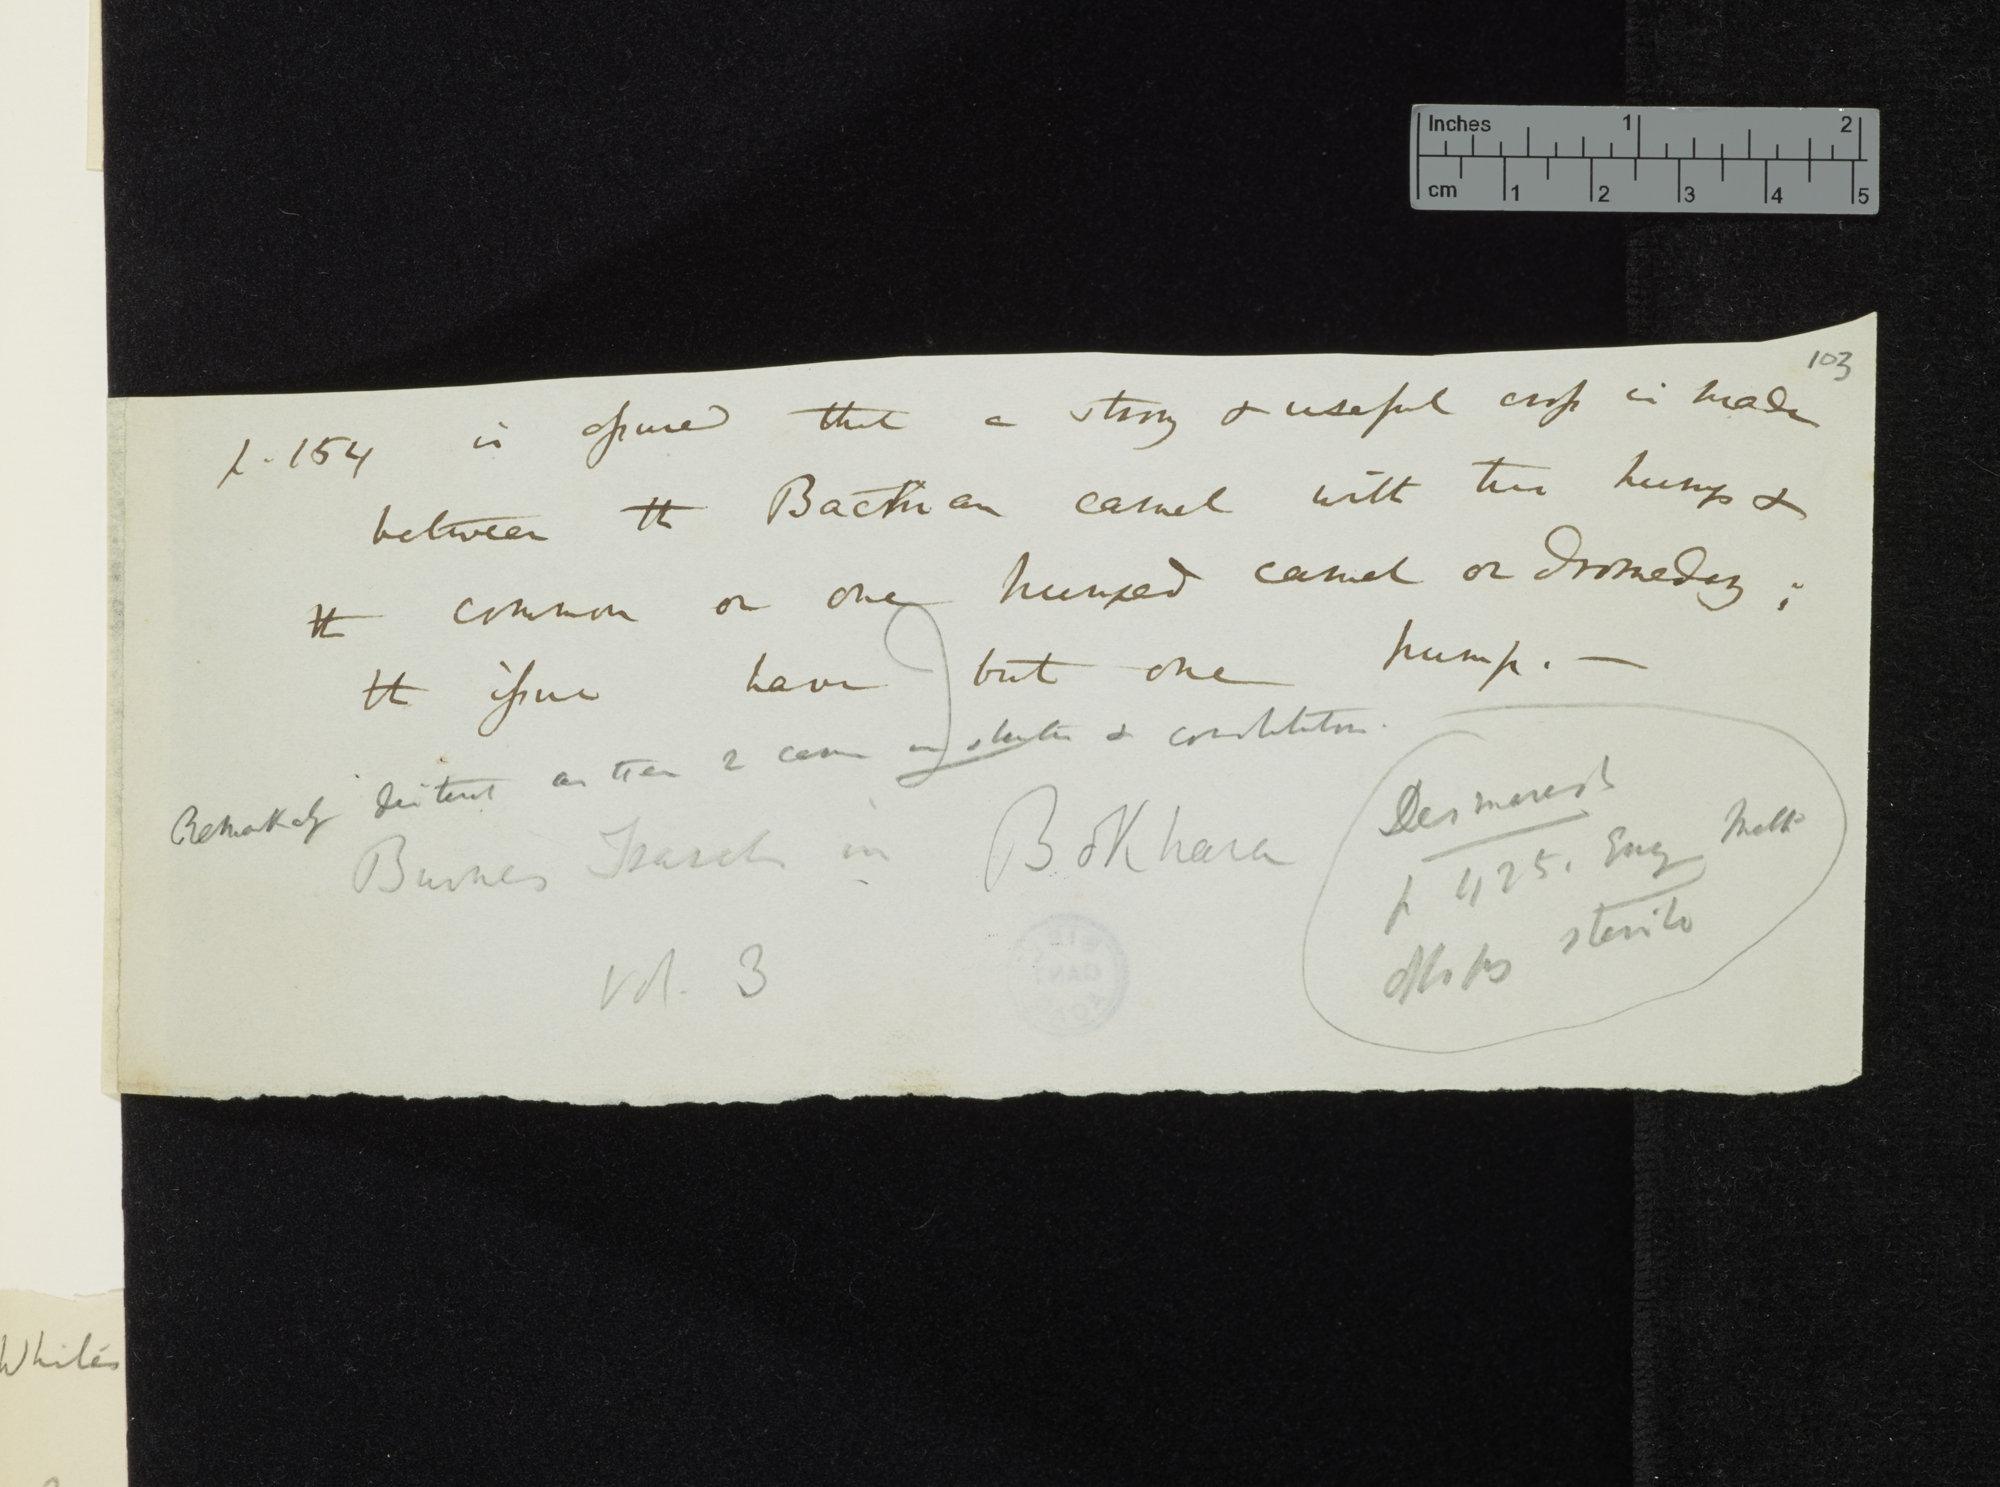 Inches 1 2
cm 1 2 3 4 5
103
p. 154 is assured that a strong & useful cross is made
between the Bactrian camel with two humps &
the common or one humped camel or dromedary;
the issue have but one hump. —
Remarkably distinct as these 2 cases in & constitution.
Burnes Travels in Bokhara
vol. 3
Desmarest
p 425. Ency Meth
sterile
Whites